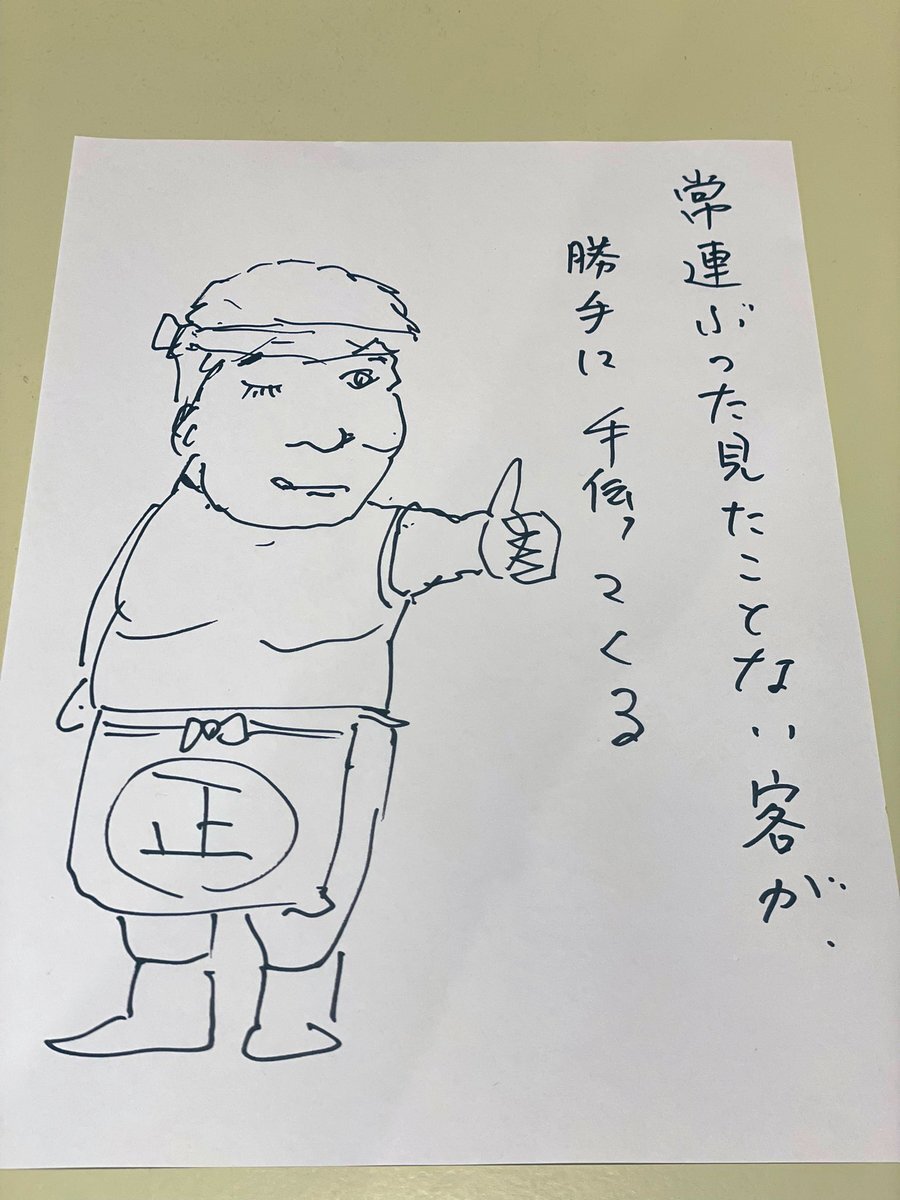 常連ぶった見たことない客が、
勝手に手伝ってくる
正